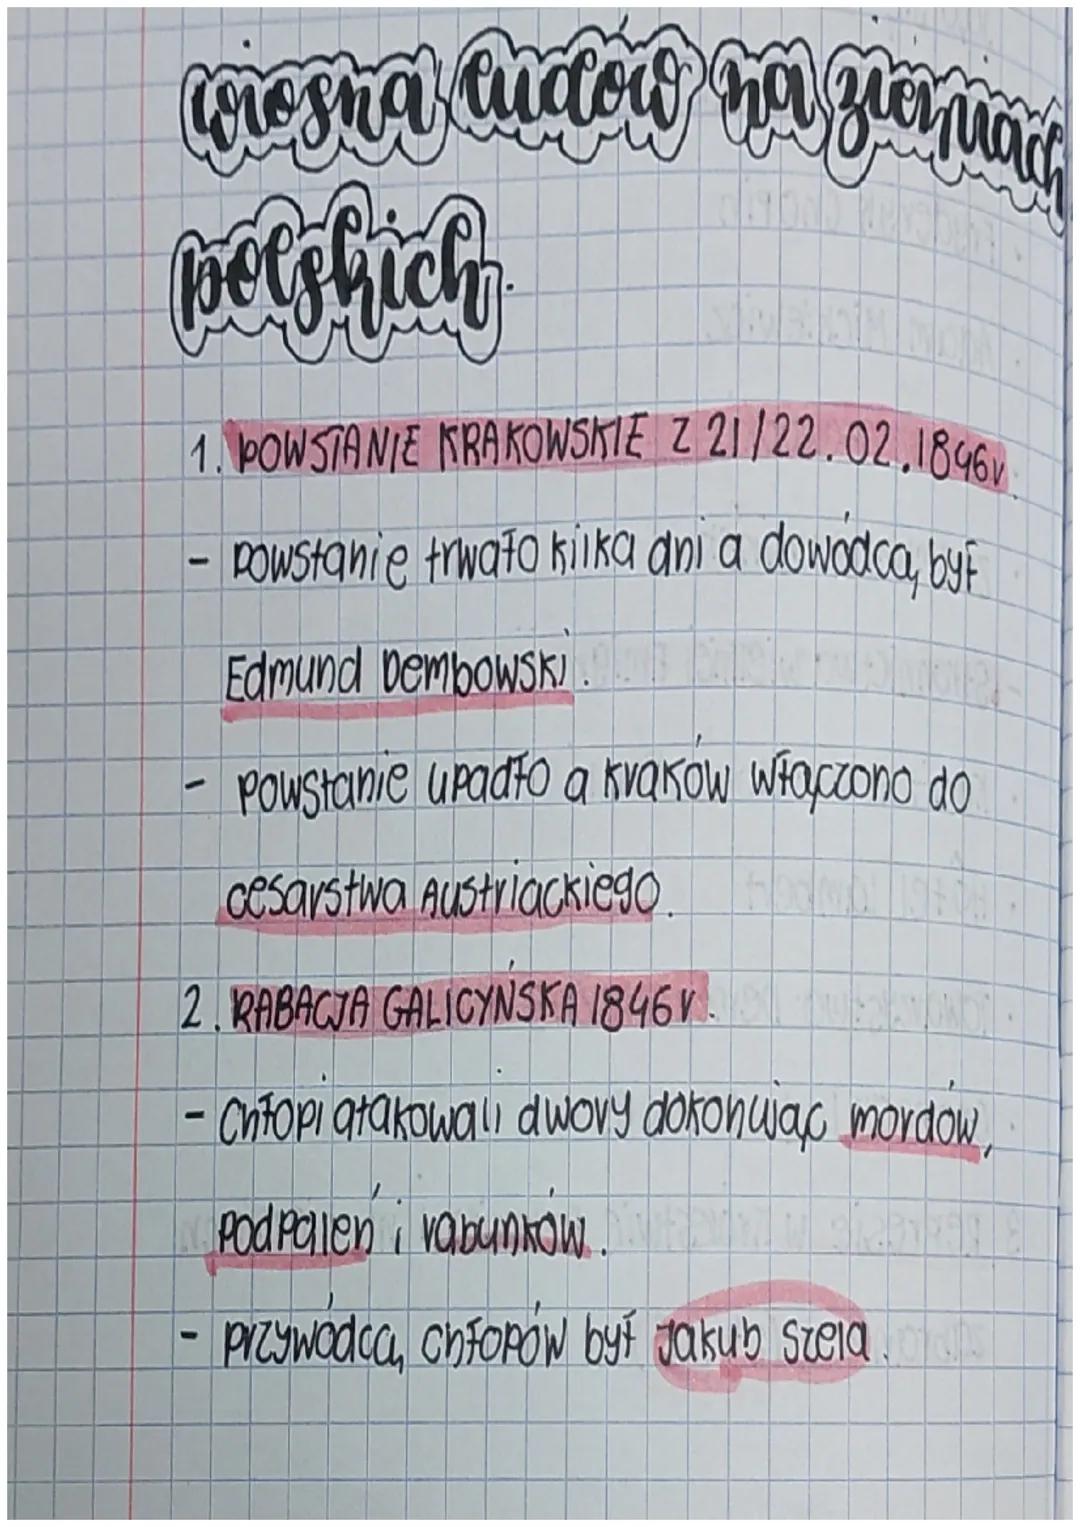 Wiosna Ludów na ziemiach
polskich.
1. POWSTANIE KRAKOWSKIE Z 21/22.02.1846r.
- powstanie trwało kilka dni a dowódcą był
Edmund Dembowski.
- powstanie upadło a kraków włączono do
cesarstwa Austriackiego.
2. RABACJA GALICYŃSKA 1846r.
- Chłopi atakowali dwory dokonując mordów,
podpaleń i rabunków.
- przywódcą chłopów był Jakub Szela.